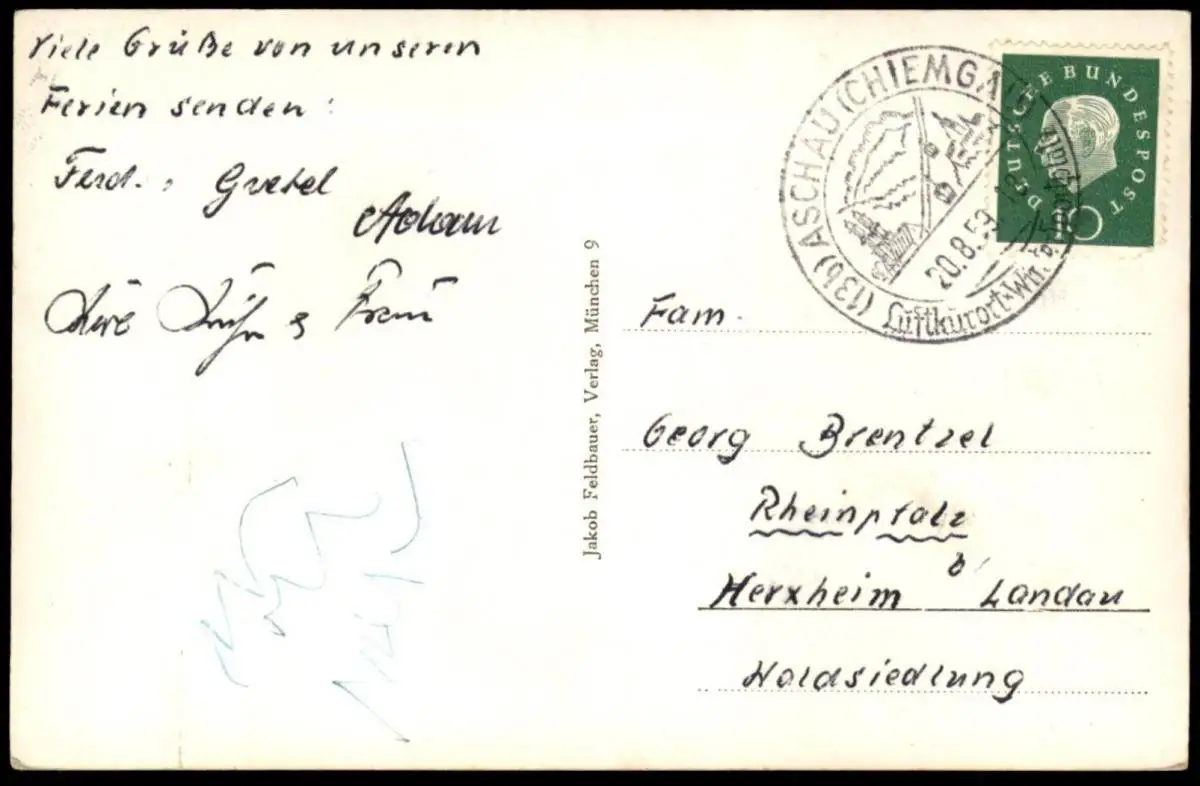 Viele Grüße von unseren
Ferien senden:
Ferd., Gretel
Adam
& Frau
Jakob Feldbauer, Verlag, München 9
(13b) ASCHAU (CHIEMGAU)
20.8.59
Luftkurort
DEUTSCHE BUNDESPOST
10
Fam.
Georg Brentzel
Rheinpfalz
Herxheim b/ Landau
Waldsiedlung